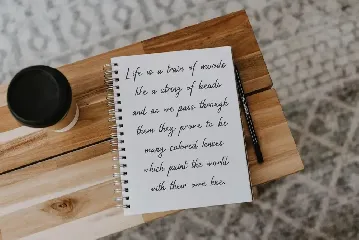 Life is a train of moods
like a string of beads
and as we pass through
them they prove to be
many colored lenses
which paint the world
with their own hue.